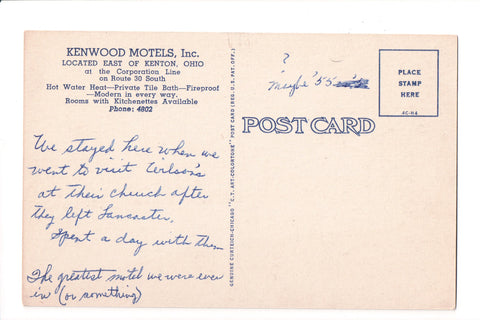 KENWOOD MOTELS, Inc.
LOCATED EAST OF KENTON, OHIO
at the Corporation Line
on Route 30 South
Hot Water Heat—Private Tile Bath—Fireproof
—Modern in every way.
Rooms with Kitchenettes Available
Phone: 4802
We stayed here when we
went to visit
at their church after
they left Lancaster.
Spent a day with them
The greatest motel we were ever
in (or something)
GENUINE CURTEICH-CHICAGO "C.T. ART-COLORTONE" POST CARD (REG. U.S. PAT. OFF.)
?
Maybe '55
POST CARD
PLACE
STAMP
HERE